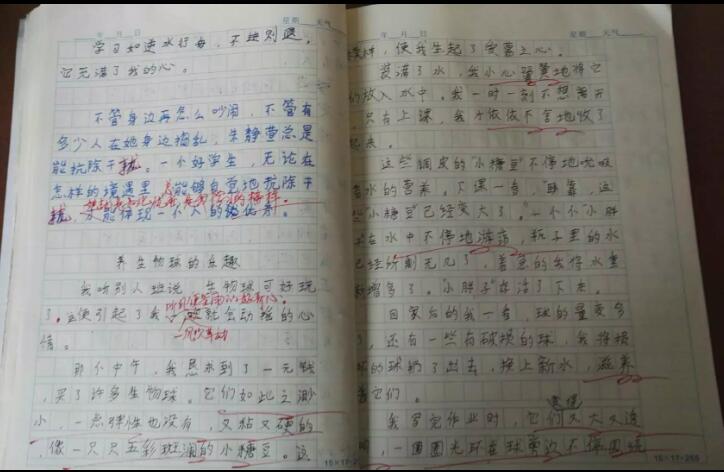 年 月 日 星期 天气
学习如逆水行舟，不进则退，
它充满了我的心。
不管身边再怎么吵闹，不管有
多少人在她身边捣乱，朱静萱总是
能抗除干扰。一个好学生，无论在
怎样的境遇里，若能够自觉地抗除干
扰，才能体现一个人的优秀。
养生物球的乐趣
我听别人班说，生物球可好玩
了。这便引起了我
的心
情。
那个中午，我思求到了一元钱
，买了许多生物球。它们如此之渺
小，一点弹性也没有，又粘又硬的
，像一只只五彩斑斓的小糖豆。这
15×17=255
年 月 日 星期 天气
，使我生起了安喜之心。
装满了水，我小心翼翼地将它
们放入水中。我一时一刻不想离开
，只有上课，我才依依不舍地收了
起来。
这些调皮的“小糖豆”不停地吮吸
着水的营养。下课一看，
些“小糖豆”已经变大了。一个个“小胖
子”在水中不停地游荡，瓶子里的水
已经所剩无几了，着急的我将水重
新增多了。“小胖子”在活了下来。
回家后的我一看，球的量变多
了，还有一些有破损的球，我将损
坏的球扔了出去，换上新水，滋养
着它们。
我写完作业时，它们又大又透
明，一圈圈光环在球旁边不停围绕
15×17=255